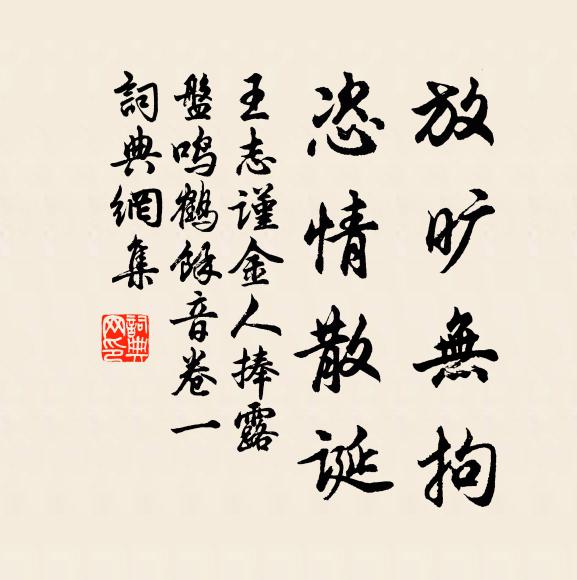 放旷無拘
恣情散诞
王志谨金人捧露
盤鸣鹤馀音卷一
詞典網集
詞典
网印